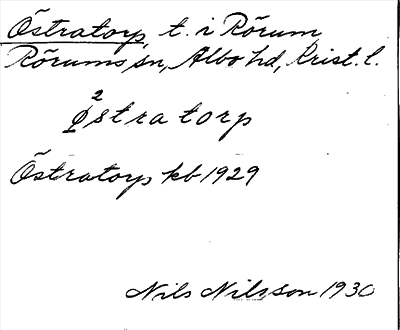 Östratorp, t. i Rörum
Rörums sn, Albo hd, Krist. l.
2
Østratorp
Östratorp kb 1929
Nils Nilsson 1930